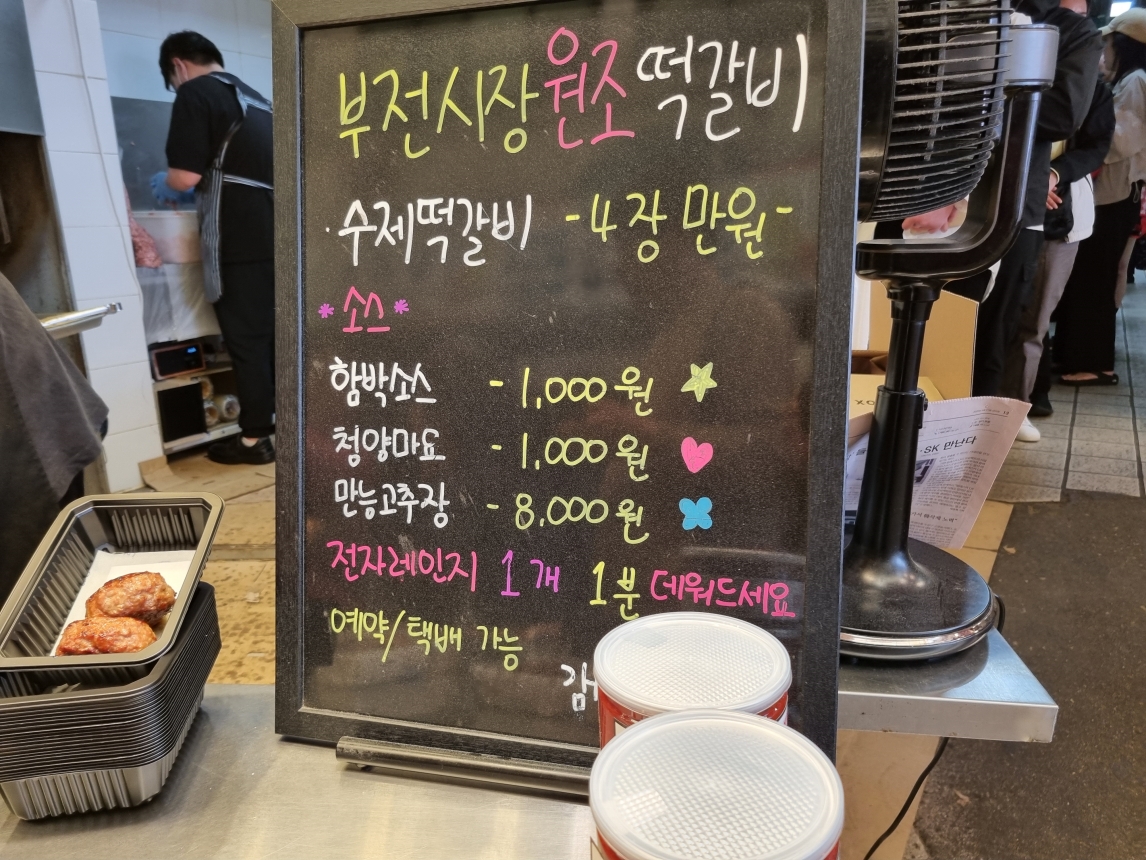 부전시장 원조 떡갈비
· 수제떡갈비 - 4장 만원 -
* 소스 *
함박소스 - 1,000원
청양마요 - 1,000원
만능고추장 - 8,000원
전자레인지 1개 1분 데워드세요
예약/택배 가능
감
SK 만난다